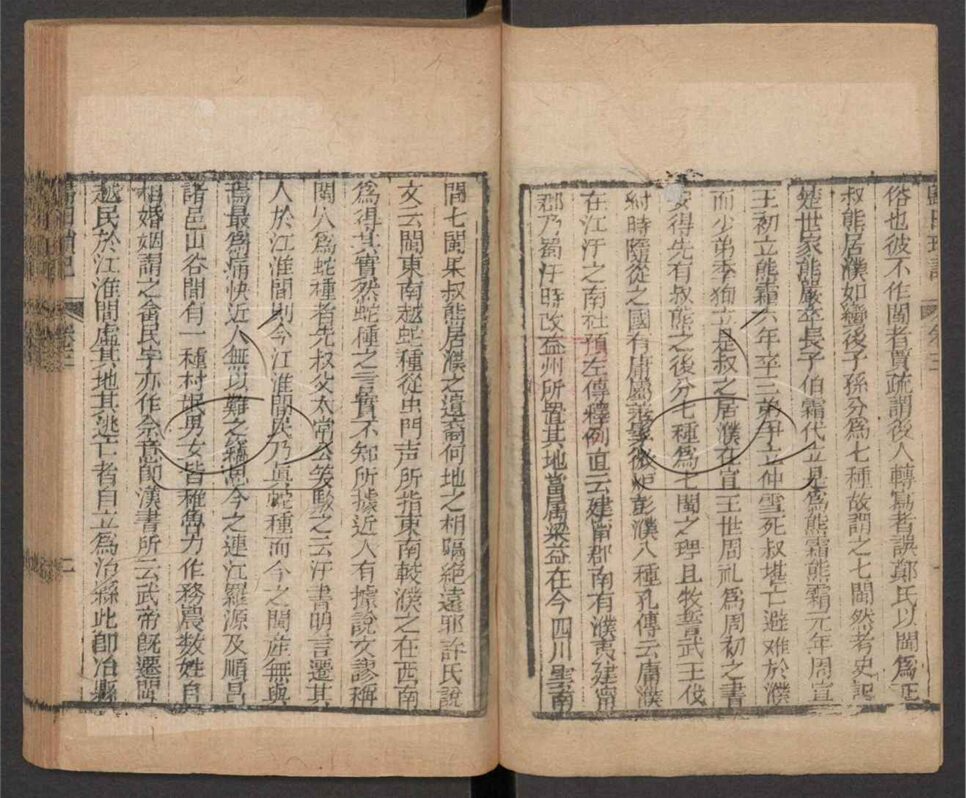 俗也彼不作閩者賈疏謂後人轉寫者誤鄭氏以閩爲正
叔熊居濮如蠻後子孫分爲七種故謂之七閩然考史記
楚世家熊嚴卒長子伯霜代立是爲熊霜熊霜元年周宣
王初立熊霜六年卒三弟爭立仲雪死叔堪亡避难於濮
而少弟季狗立是叔之居濮在宣王世周礼爲周初之書
安得先有叔熊之後分七種爲七閩之理且牧誓武王伐
紂時隨從之國有庸蜀羌髳微炉彭濮八種孔傳云庸濮
在江汙之南杜預左傳釋例直云建甯郡南有濮夷建甯
郡乃蜀汙時改益州所置其地當屬梁益在今四川雲南
間七閩果叔熊居濮之遺裔何地之相隔絕遠邪許氏說
文云閩東南越蛇種從虫門吉所指東南較濮之在西南
爲得其實然蛇種之言實不知所據近人有據說文謬稱
閩人爲蛇種者先叔父太常公笑駁之云汙書明言遷其
人於江淮間則今江淮間民乃眞蛇種而今之閩產無與
焉最爲痛快近人無以難之竊思今之連江羅源及順昌
諸邑山谷間有一種村氓男女皆椎魯力作務農数姓自
相婚姻謂之畲民字亦作佘意即漢書所云武帝旣遷閩
越民於江淮間虛其地其逃亡者自立爲治縣此卽冶縣
卷十二
二